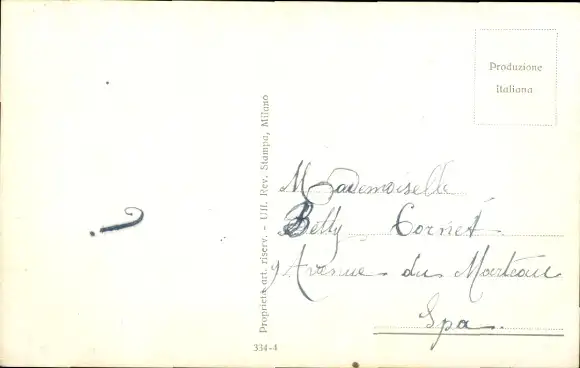 Produzione
Italiana
Proprietà art. riserv. - Uff. Rev. Stampa, Milano
?
Mademoiselle
Betty Cornet
9 Avenue du Marteau
Spa.
334-4